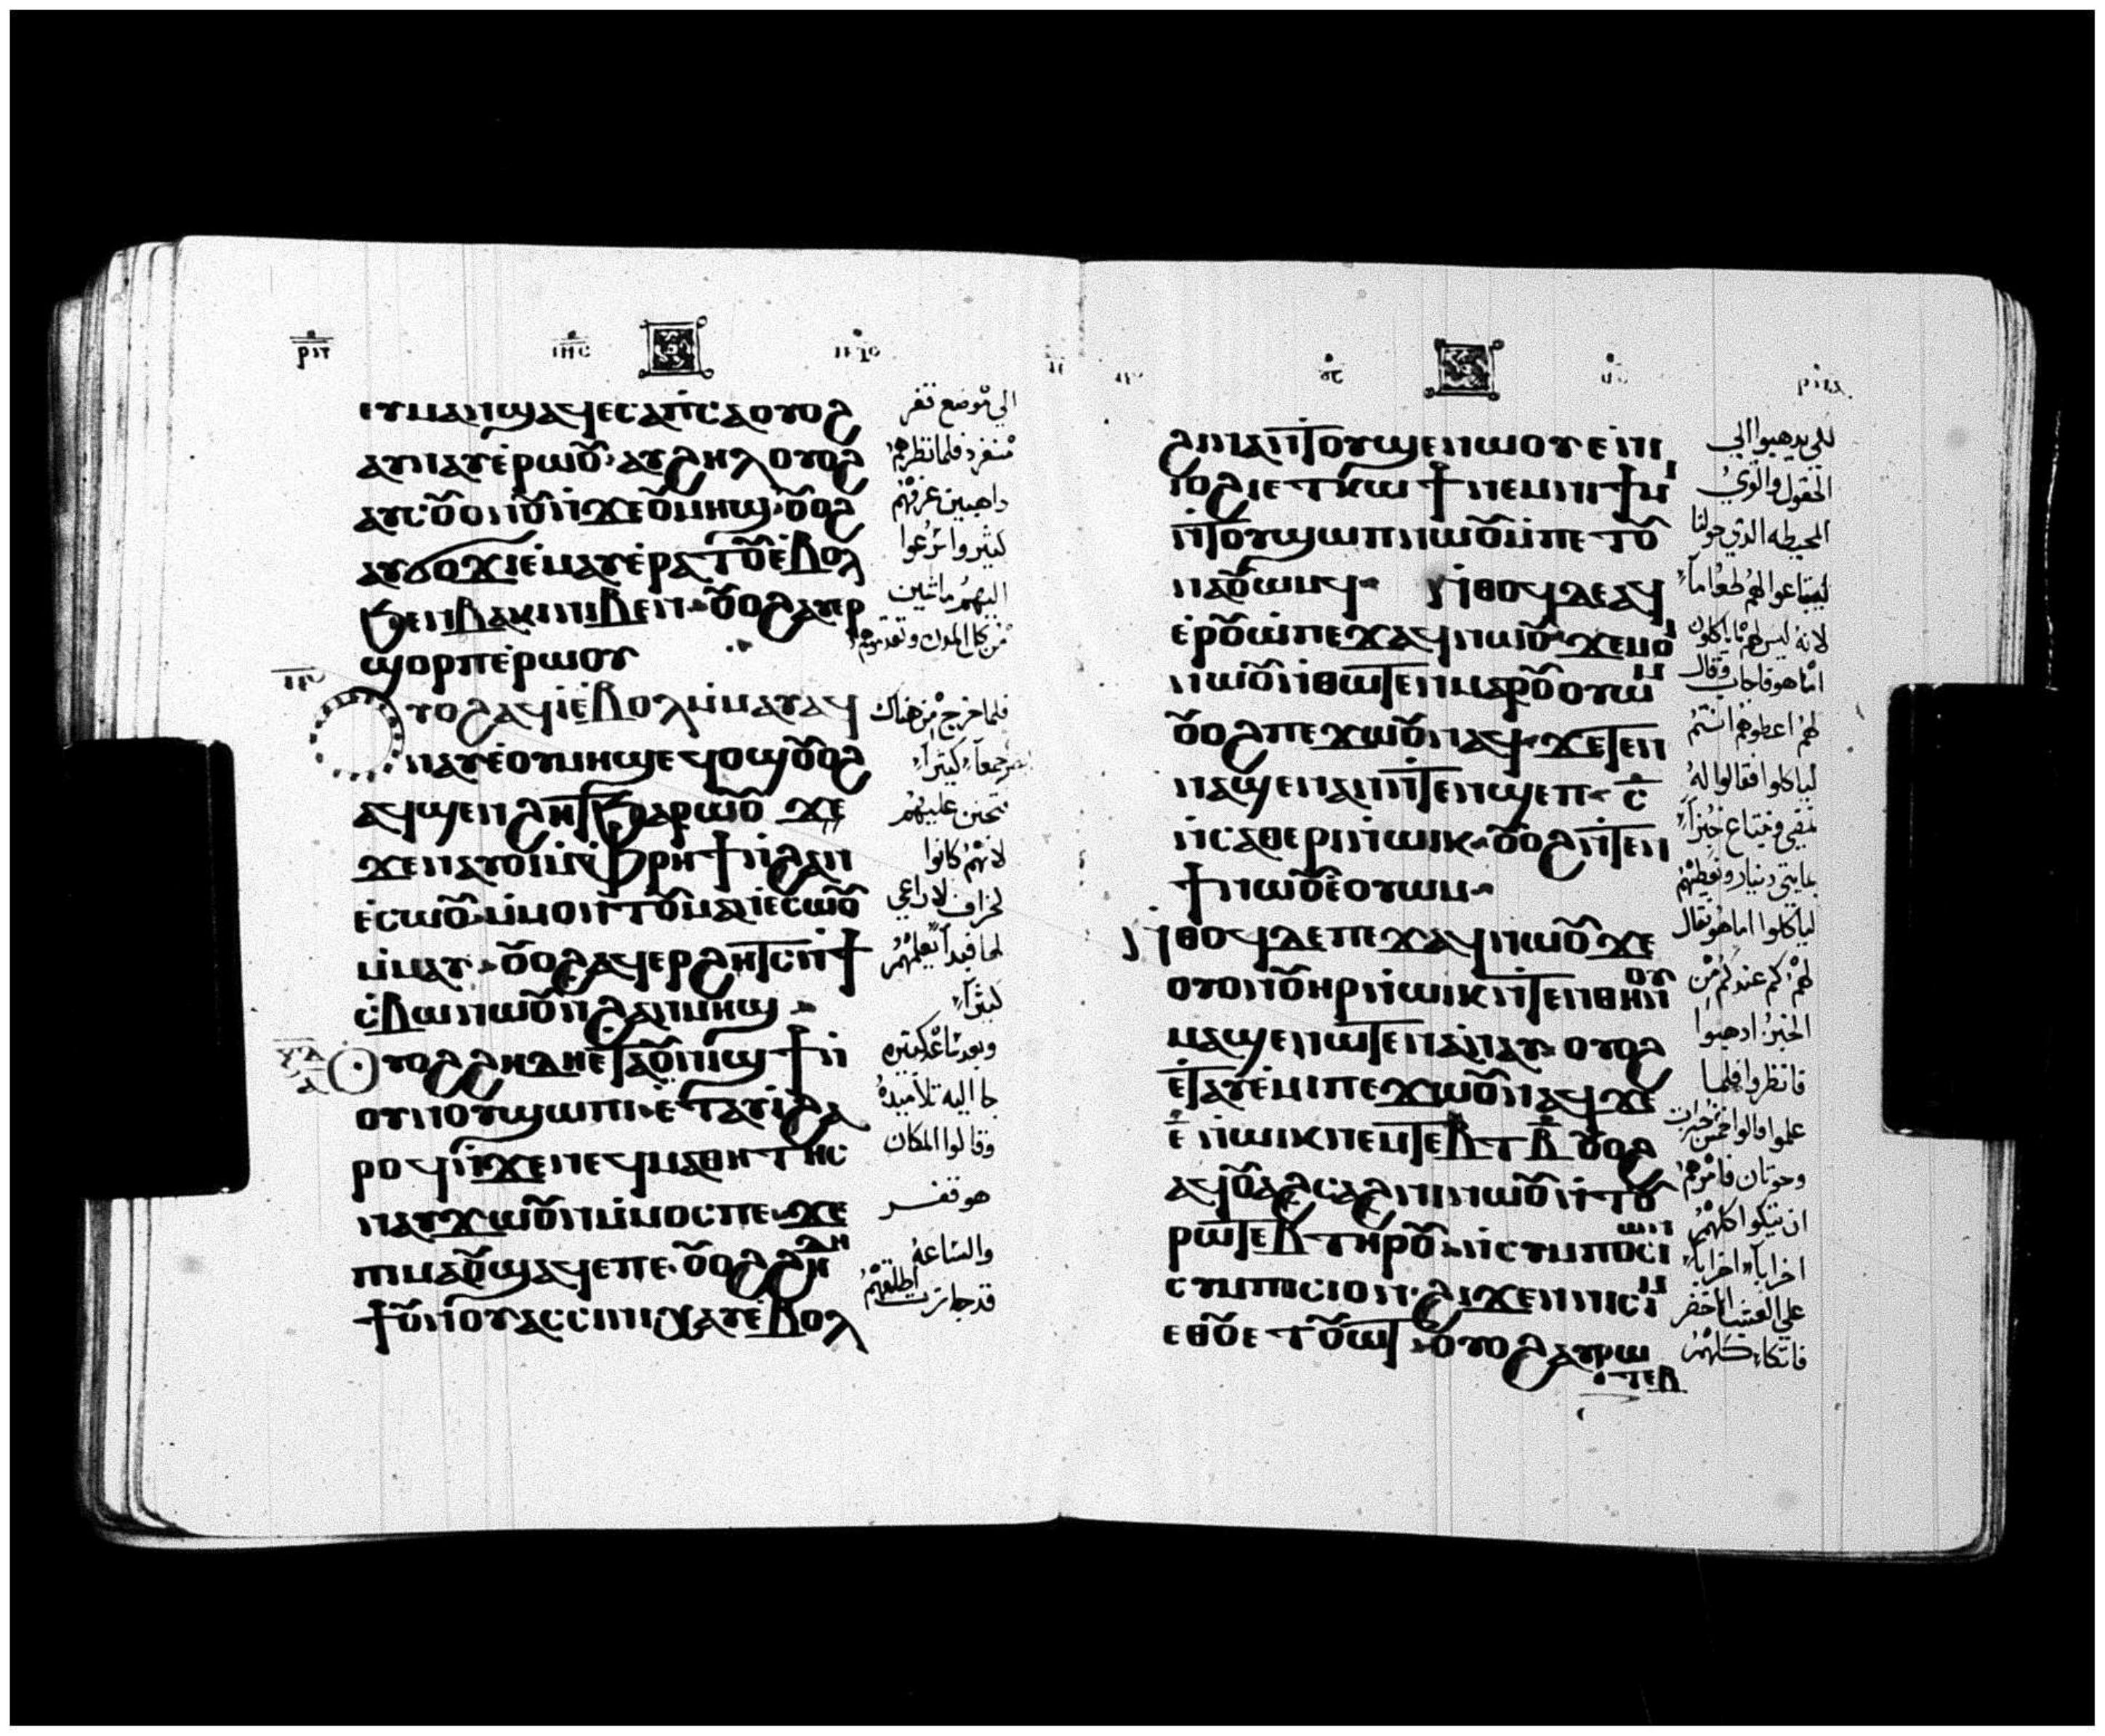 ⲉⲩⲙⲁⲛϣⲁϥⲉⲥⲁⲡⲥⲁ ⲟⲩⲟϩ
ⲁⲩⲛⲁⲩⲉⲣⲱⲟⲩ ⲁⲩϩⲏⲗ ⲟⲩⲟϩ
ⲁⲩⲥⲟⲩⲟⲛⲟⲩ ⲛϫⲉⲟⲩⲙⲏϣ ⲟⲩⲟϩ
ⲁⲩϭⲟϫⲓ ⲉⲙⲁⲩ ⲉⲣⲁⲧⲟⲩ ⲉⲃⲟⲗ
ϧⲉⲛⲃⲁⲕⲓ ⲛⲓⲃⲉⲛ ⲟⲩⲟϩ ⲁⲩⲉⲣ
ϣⲟⲣⲡ ⲉⲣⲱⲟⲩ
ⲟⲩⲟϩ ⲁϥⲓ ⲉⲃⲟⲗ ⲙⲙⲁⲩ ⲁϥ
ⲛⲁⲩ ⲉⲟⲩⲙⲏϣ ⲉϥⲟϣ ⲟⲩⲟϩ
ⲁϥϣⲉⲛϩⲏⲧ ϧⲁⲣⲱⲟⲩ ϫⲉ
ϫⲉⲛⲁⲩⲟⲓ ⲙⲫⲣⲏϯ ⲛϩⲁⲛ
ⲉⲥⲱⲟⲩ ⲙⲙⲟⲛⲧⲟⲩ ⲙⲁⲛⲉⲥⲱⲟⲩ
ⲙⲙⲁⲩ ⲟⲩⲟϩ ⲁϥⲉⲣϩⲏⲧⲥ ⲛϯ
ⲥⲃⲱ ⲛⲱⲟⲩ ⲛϩⲁⲛⲙⲏϣ
ⲟⲩⲟϩ ϩⲏⲇⲏ ⲉⲧⲁⲟⲩⲛⲓϣϯ ⲛ
ⲟⲩⲛⲟⲩ ϣⲱⲡⲓ ⲉⲧⲁⲩⲓ ϩⲁ
ⲣⲟϥ ⲛϫⲉⲛⲉϥⲙⲁⲑⲏⲧⲏⲥ
ⲛⲁⲩϫⲱ ⲙⲙⲟⲥ ⲡⲉ ϫⲉ
ⲡⲓⲙⲁ ⲟⲩϣⲁϥⲉ ⲡⲉ ⲟⲩⲟϩ ϩⲏⲇⲏ
ⲭⲁⲩ ⲉⲃⲟⲗ
الى موضع قفر
منفرد فلما نظرهم
داهبين عرفهم
كثير واسرعوا
اليهم ماشين
من كل المدن وتقدموهم
فلما خرج من هناك
فتحنن عليهم
لانهم كانوا
كخراف لا راعي
لها فبدا يعلمهم
كثيرا
وبعد ساعه كثيره
جا اليه تلاميده
وقالوا المكان
هو قفر
والساعه
قد جازت اطلقهم
ϩⲓⲛⲁ ⲛⲧⲟⲩϣⲉⲛⲱⲟⲩ ⲉⲛⲓ
ⲓⲟϩⲓ ⲉⲧⲕⲱϯ ⲛⲉⲙ ⲛⲓϯⲙⲓ
ⲛⲧⲟⲩϣⲱⲡ ⲛⲱⲟⲩ ⲙⲡⲉⲧⲟⲩ
ⲛⲁⲟⲩⲟⲙϥ ⲛⲑⲟϥ ⲇⲉ ⲁϥ
ⲉⲣⲟⲩⲱ ⲡⲉϫⲁϥ ⲛⲱⲟⲩ ϫⲉ ⲙⲟⲓ
ⲛⲱⲟⲩ ⲛⲑⲱⲧⲉⲛ ⲙⲁⲣⲟⲩⲟⲩⲱⲙ
ⲟⲩⲟϩ ⲡⲉϫⲱⲟⲩ ⲛⲁϥ ϫⲉ ⲧⲉⲛ
ⲛⲁϣⲉⲛⲁⲛ ⲛⲧⲉⲛϣⲉⲡ ⲥ
ⲛⲥⲁⲑⲉⲣⲓ ⲛⲱⲓⲕ ⲟⲩⲟϩ ⲛⲧⲉⲛ
ϯ ⲛⲱⲟⲩ ⲉⲟⲩⲱⲙ
ⲛⲑⲟϥ ⲇⲉ ⲡⲉϫⲁϥ ⲛⲱⲟⲩ ϫⲉ
ⲟⲩⲟⲛ ⲟⲩⲏⲣ ⲛⲱⲓⲕ ⲛⲧⲉⲛⲑⲏⲛⲟⲩ
ⲙⲁϣⲉⲛⲱⲧⲉⲛ ⲁⲛⲁⲩ ⲟⲩⲟϩ
ⲉⲧⲁⲩⲉⲙⲓ ⲡⲉϫⲱⲟⲩ ⲛⲁϥ ϫⲉ
ⲉ ⲛⲱⲓⲕ ⲛⲉⲙ ⲧⲉⲃⲧ ⲃ ⲟⲩⲟϩ
ⲁϥⲟⲩⲁϩⲥⲁϩⲛⲓ ⲛⲱⲟⲩ ⲛⲧⲟⲩ
ⲣⲱⲧⲉⲃ ⲧⲏⲣⲟⲩ ⲛⲥⲩⲙⲡⲟⲥⲓⲱⲛ
ⲥⲩⲙⲡⲟⲥⲓⲟⲛ ϩⲓϫⲉⲛ ⲛⲓⲥⲓⲙ
ⲉⲑⲟⲩⲉⲧⲟⲩⲱⲧ ⲟⲩⲟϩ ⲁⲩⲣⲱ
ⲧⲉⲃ
لكي يدهبوا الى
الحقول والقرى
المحيطه الذي حولنا
ليبتاعوا لهم طعاما
لانه ليس لهم ما ياكلون
اما هو فاجاب وقال
لهم اعطوهم انتم
لياكلوا فقالوا له
نمضي ونبتاع خبزا
بمايتي دينار ونعطيهم
لياكلوا اما هو فقال
لهم كم عندكم من
الخبز ادهبوا
فانظروا فلما
علموا قالوا خمس خبزات
وحوتان فامرهم
ان يتكوا كلهم
احزابا احزابا
على العشب الاخضر
فاتكا كلهم